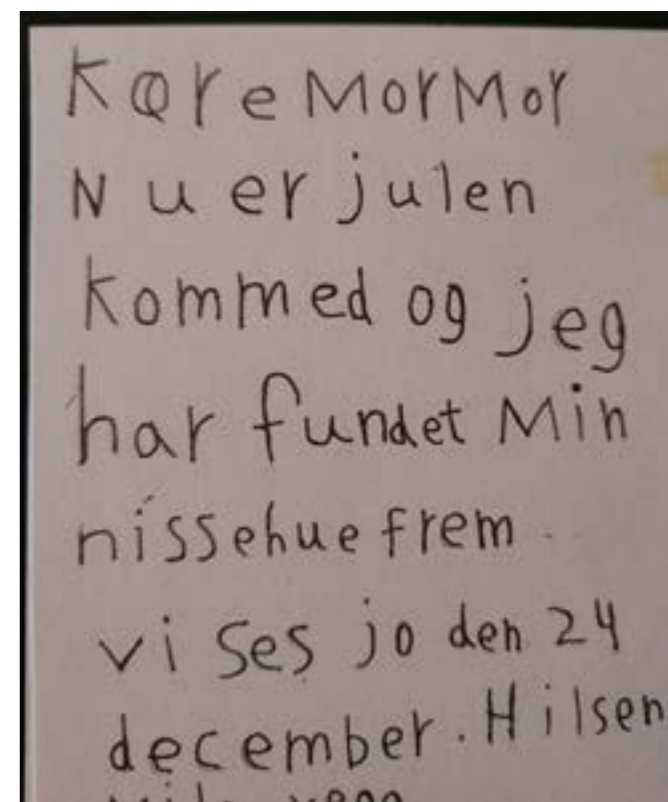 Kære MorMor
Nu er julen
kommed og jeg
har fundet Min
nissehue frem.
vi ses jo den 24
december. Hilsen